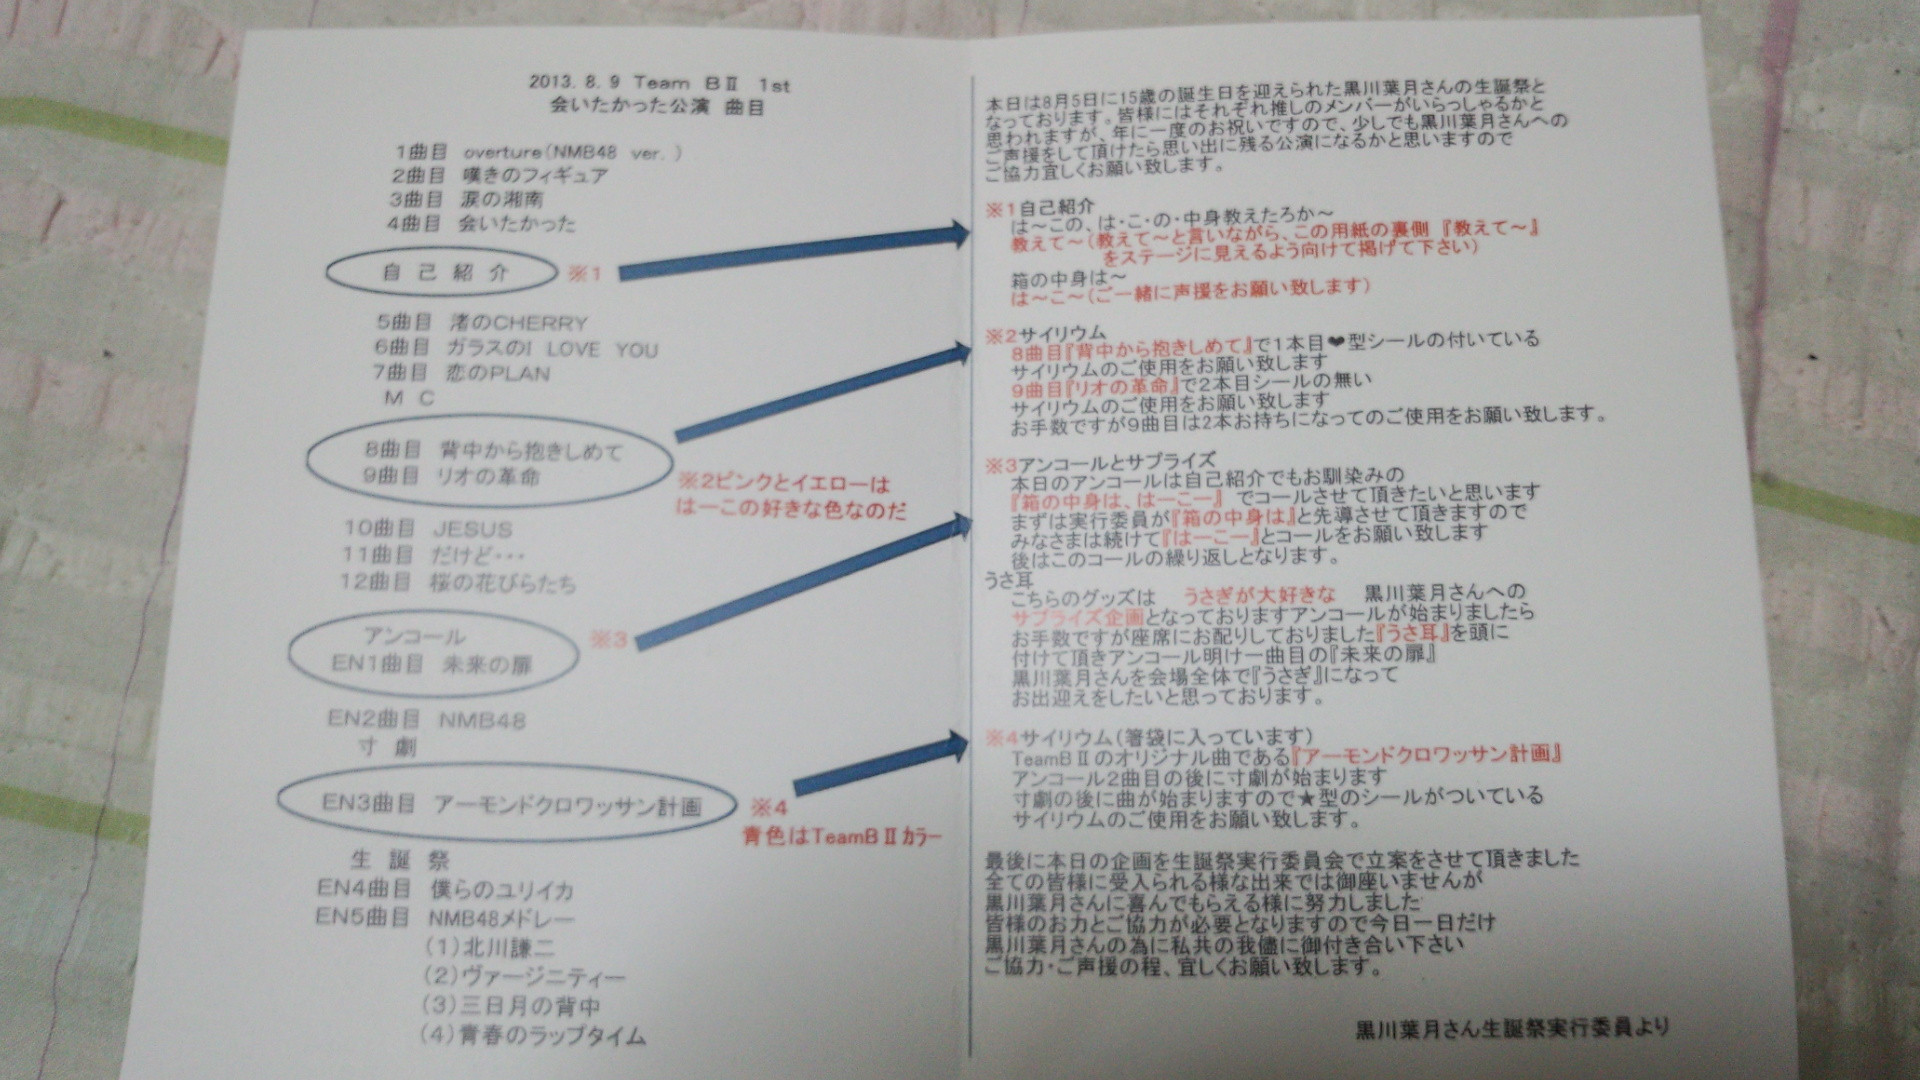 2013. 8. 9 Team BⅡ 1st
会いたかった公演 曲目
1曲目 overture(NMB48 ver. )
2曲目 嘆きのフィギュア
3曲目 涙の湘南
4曲目 会いたかった
自 己 紹 介 ※1
5曲目 渚のCHERRY
6曲目 ガラスのI LOVE YOU
7曲目 恋のPLAN
M C
8曲目 背中から抱きしめて
9曲目 リオの革命
※2ピンクとイエローは
はーこの好きな色なのだ
10曲目 JESUS
11曲目 だけど・・・
12曲目 桜の花びらたち
アンコール
EN1曲目 未来の扉
※3
EN2曲目 NMB48
寸 劇
EN3曲目 アーモンドクロワッサン計画
※4
青色はTeamBⅡカラー
生 誕 祭
EN4曲目 僕らのユリイカ
EN5曲目 NMB48メドレー
(1)北川謙二
(2)ヴァージニティー
(3)三日月の背中
(4)青春のラップタイム
本日は8月5日に15歳の誕生日を迎えられた黒川葉月さんの生誕祭と
なっております。皆様にはそれぞれ推しのメンバーがいらっしゃるかと
思われますが、年に一度のお祝いですので、少しでも黒川葉月さんへの
ご声援をして頂けたら思い出に残る公演になるかと思いますので
ご協力宜しくお願い致します。
※1自己紹介
は～この、は・こ・の・中身教えたろか～
教えて～(教えて～と言いながら、この用紙の裏側『教えて～』
をステージに見えるよう向けて掲げて下さい)
箱の中身は～
は～こ～(ご一緒に声援をお願い致します)
※2サイリウム
8曲目『背中から抱きしめて』で1本目❤型シールの付いている
サイリウムのご使用をお願い致します
9曲目『リオの革命』で2本目シールの無い
サイリウムのご使用をお願い致します
お手数ですが9曲目は2本お持ちになってのご使用をお願い致します。
※3アンコールとサプライズ
本日のアンコールは自己紹介でもお馴染みの
『箱の中身は、はーこー』 でコールさせて頂きたいと思います
まずは実行委員が『箱の中身は』と先導させて頂きますので
みなさまは続けて『はーこー』とコールをお願い致します
後はこのコールの繰り返しとなります。
うさ耳
こちらのグッズは うさぎが大好きな 黒川葉月さんへの
サプライズ企画となっておりますアンコールが始まりましたら
お手数ですが座席にお配りしておりました『うさ耳』を頭に
付けて頂きアンコール明け一曲目の『未来の扉』
黒川葉月さんを会場全体で『うさぎ』になって
お出迎えをしたいと思っております。
※4サイリウム(箸袋に入っています)
TeamBⅡのオリジナル曲である『アーモンドクロワッサン計画』
アンコール2曲目の後に寸劇が始まります
寸劇の後に曲が始まりますので★型のシールがついている
サイリウムのご使用をお願い致します。
最後に本日の企画を生誕祭実行委員会で立案をさせて頂きました
全ての皆様に受入られる様な出来では御座いませんが
黒川葉月さんに喜んでもらえる様に努力しました
皆様のお力とご協力が必要となりますので今日一日だけ
黒川葉月さんの為に私共の我儘に御付き合い下さい
ご協力・ご声援の程、宜しくお願い致します。
黒川葉月さん生誕祭実行委員より